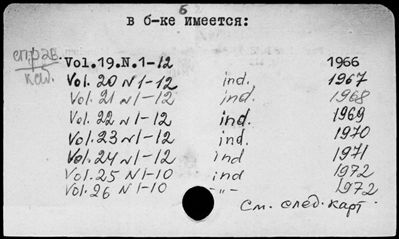 6
в б-ке имеется:
справ. Vol.19.N.1-12 1966
кат. Vol. 20 N 1-12 ind. 1967
Vol. 21 N 1-12 ind. 1968
Vol. 22 N 1-12 ind. 1969
Vol. 23 N 1-12 ind. 1970
Vol. 24 N 1-12 ind 1971
Vol. 25 N 1-10 ind 1972
Vol. 26 N 1-10 -"- 1972
См. след. карт.